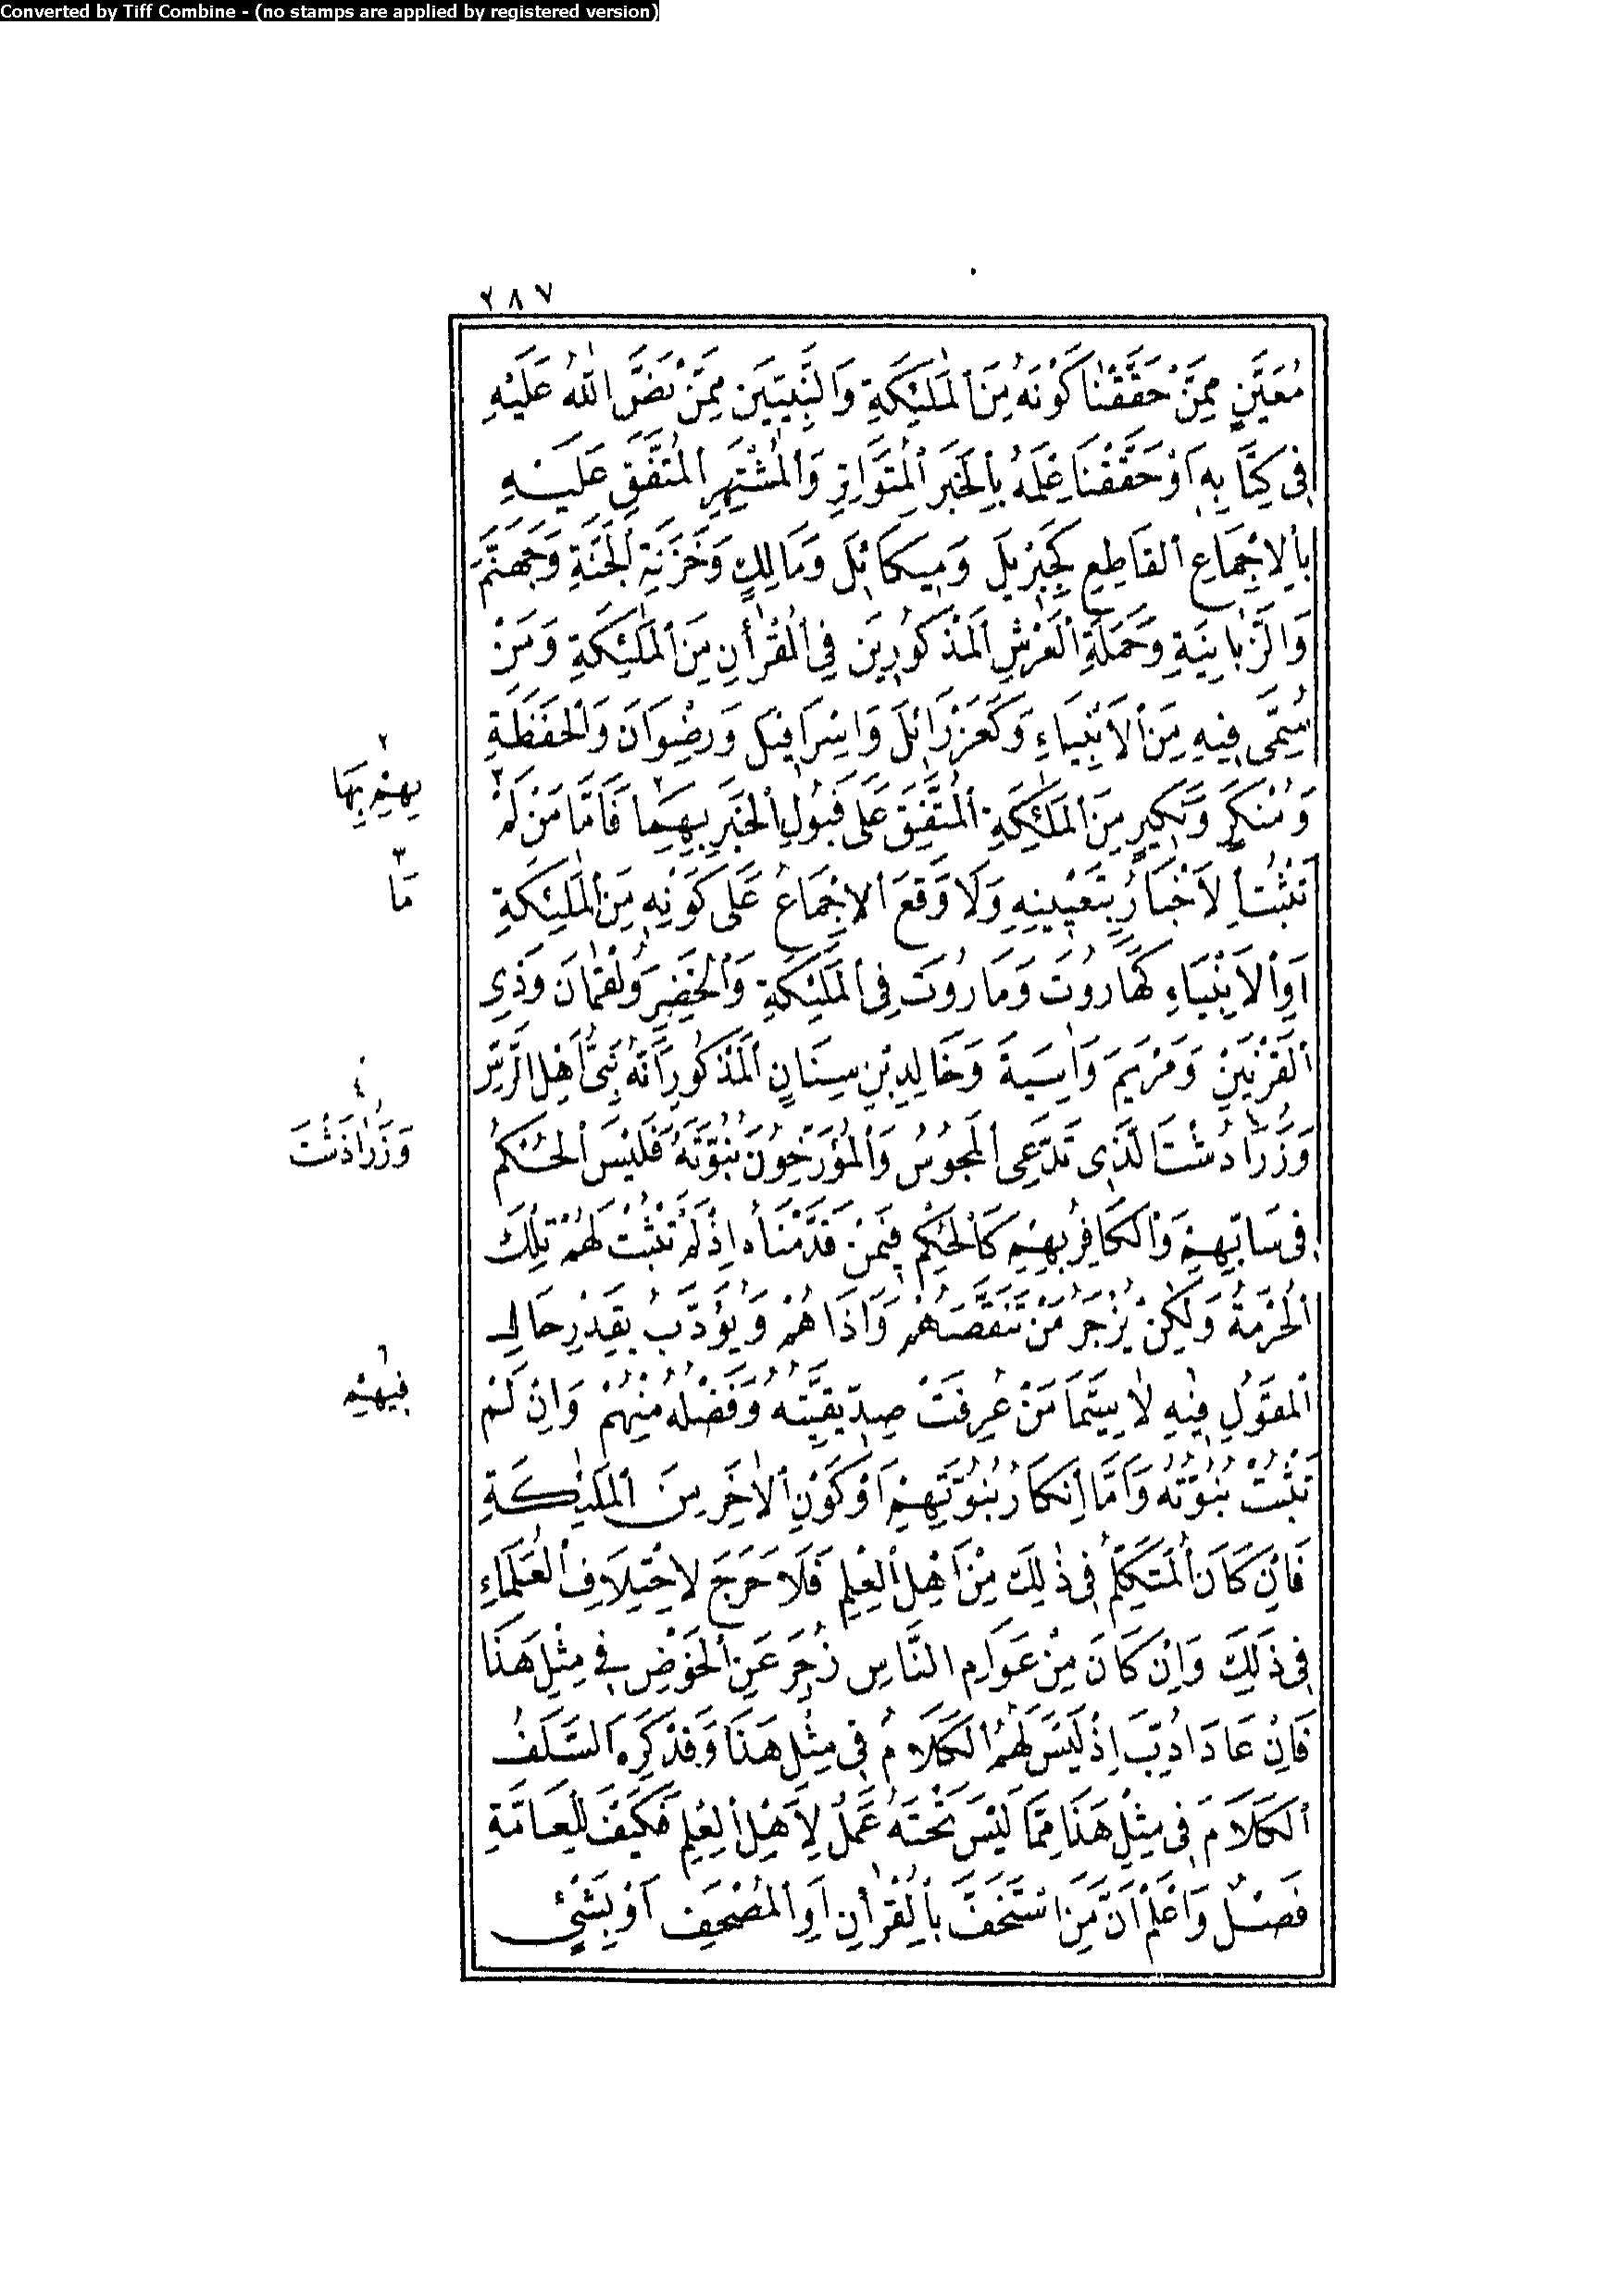 Converted by Tiff Combine - (no stamps are applied by registered version)
٢٨٧
مُعَيَّنٍ مِمَّنْ حَقَّقْنَا كَوْنَهُ مِنَ الْمَلٰئِكَةِ وَالنَّبِيِّينَ مِمَّنْ نَصَّ اللّٰهُ عَلَيْهِ
فِى كِتَابِهِ اَوْ حَقَّقْنَا عِلْمَهُ بِالْخَبَرِ الْمُتَوَاتِرِ وَالْمُشْتَهِرِ الْمُتَّفَقِ عَلَيْهِ
بِالْاِجْمَاعِ الْقَاطِعِ كَجِبْرِيلَ وَمِيكَائِلَ وَمَالِكٍ وَخَزَنَةِ الْجَنَّةِ وَجَهَنَّمَ
وَالزَّبَانِيَةِ وَحَمَلَةِ الْعَرْشِ الْمَذْكُورِينَ فِى الْقُرْاٰنِ مِنَ الْمَلٰئِكَةِ وَمَنْ
سُمِّىَ فِيهِ مِنَ الْاَنْبِيَاءِ وَكَعَزْرَائِلَ وَاِسْرَافِيلَ وَرِضْوَانَ وَالْحَفَظَةِ
وَمُنْكَرٍ وَنَكِيرٍ مِنَ الْمَلٰئِكَةِ الْمُتَّفَقِ عَلَى قَبُولِ الْخَبَرِ بِهِمَا ٢ فَاَمَّا مَنْ لَمْ ٣
تَثْبُتِ الْاَخْبَارُ بِتَعْيِينِهِ وَلَا وَقَعَ الْاِجْمَاعُ عَلَى كَوْنِهِ مِنَ الْمَلٰئِكَةِ
اَوِ الْاَنْبِيَاءِ كَهَارُوتَ وَمَارُوتَ فِى الْمَلٰئِكَةِ وَالْخَضِرِ وَلُقْمَانَ وَذِى
الْقَرْنَيْنِ وَمَرْيَمَ وَاٰسِيَةَ وَخَالِدِ بْنِ سِنَانٍ الْمَذْكُورِ اَنَّهُ نَبِىُّ اَهْلِ الرَّسِّ
وَزَرَادُشْتَ الَّذِى تَدَّعِى الْمَجُوسُ وَالْمُؤَرِّخُونَ نُبُوَّتَهُ فَلَيْسَ الْحُكْمُ
فِى سَابِّهِمْ وَالْكَافِرِ بِهِمْ كَالْحُكْمِ فِيمَنْ قَدَّمْنَاهُ اِذْ لَمْ تَثْبُتْ لَهُمْ تِلْكَ
الْحُرْمَةُ وَلٰكِنْ يُزْجَرُ مَنْ تَنَقَّصَهُمْ وَاٰذَاهُمْ وَيُؤَدَّبُ بِقَدْرِ حَالِ
الْمَقُولِ فِيهِ لَا سِيَّمَا مَنْ عُرِفَتْ صِدِّيقِيَّتُهُ وَفَضْلُهُ مِنْهُمْ وَاِنْ لَمْ
تَثْبُتْ نُبُوَّتُهُ وَاَمَّا اِنْكَارُ نُبُوَّتِهِمْ اَوْ كَوْنِ الْاٰخَرِ مِنَ الْمَلٰئِكَةِ
فَاِنْ كَانَ الْمُتَكَلِّمُ فِى ذٰلِكَ مِنْ اَهْلِ الْعِلْمِ فَلَا حَرَجَ لِاخْتِلَافِ الْعُلَمَاءِ
فِى ذَلِكَ وَاِنْ كَانَ مِنْ عَوَامِ النَّاسِ زُجِرَ عَنِ الْخَوْضِ فِى مِثْلِ هَذَا
فَاِنْ عَادَ اُدِّبَ اِذْ لَيْسَ لَهُمُ الْكَلَامُ فِى مِثْلِ هَذَا وَقَدْ كَرِهَ السَّلَفُ
الْكَلَامَ فِى مِثْلِ هَذَا مِمَّا لَيْسَ تَحْتَهُ عَمَلٌ لِاَهْلِ الْعِلْمِ فَكَيْفَ لِلْعَامَّةِ
فَصْلٌ وَاعْلَمْ اَنَّ مَنِ اسْتَخَفَّ بِالْقُرْاٰنِ اَوِ الْمُصْحَفِ اَوْ بِشَىْءٍ
٢
بِهِمْ بِهَا
٣
مَا
٤
وَزَرَادَشْتَ
٦
فِيهِمْ